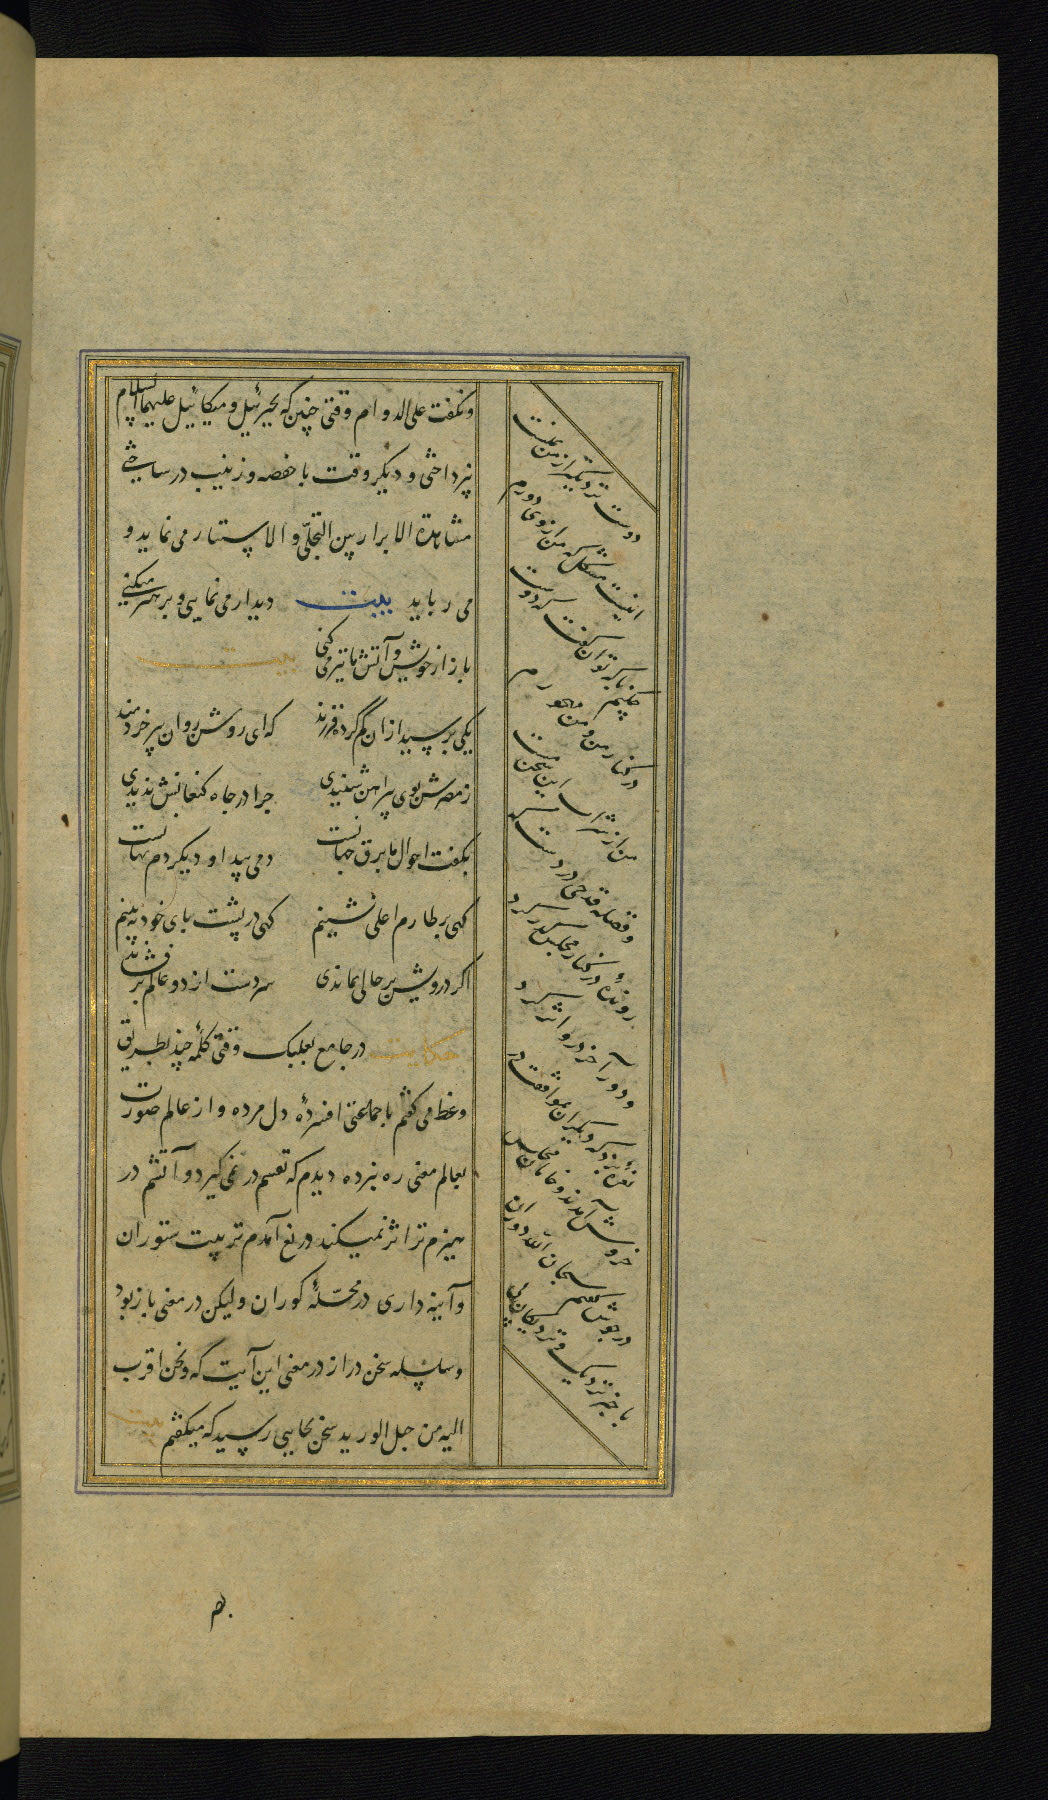 ونگفت علی الدوام وقتی چنین که بجبرئیل و میکائیل علیهما السلام
نپرداختی و دیگر وقت با حفصه و زینب در ساختی
مشاهدة الابرار بین التجلّی و الاستتار می نماید و
می رباید بیت دیدار می نمایی و پرهیز میکنی
بازار خویش و آتش ما تیز می کنی بیت
یکی پرسید ازان گم کرده فرزند که ای روشن روان پیر خردمند
ز مصرش بوی پیراهن شنیدی چرا در چاه کنعانش ندیدی
بگفت احوال ما برق جهانست دمی پیدا و دیگر دم نهانست
گهی بر طارم اعلی نشینم گهی در پشت پای خود نه بینم
اگر درویش بر حالی بماندی سر دست از دو عالم بر فشاندی
حکایت در جامع بعلبک وقتی کلمۀ چند بطریق
وعظ می گفتم با جماعتی افسردۀ دل مرده و از عالم صورت
بعالم معنی ره نبرده دیدم که نفسم در نمی گیرد و آتشم در
هیزم تر اثر نمیکند دریغ آمدم تربیت ستوران
و آینه داری در محلّۀ کوران ولیکن در معنی باز بود
و سلسله سخن دراز در معنی این آیت که ونحن اقرب
الیه من حبل الورید سخن بجایی رسید که میگفتم بیت
دوست نزدیکتر از من بمنست
اینت مشکل که من از وی دورم
چکنم با که توان گفت که دوست
در کنار من و من مهجورم
من از شراب این سخن مست
و فضاله قدحی در دست که
روندۀ در کنار مجلس گذر کرد
و دور آخر درو اثر کرد
نعرۀ بزد که دیگران بموافقت در
خروش آمدند و خامان مجلس
در جوش گفتم سبحان الله دوران
با خبر نزدیک و نزدیکان بی